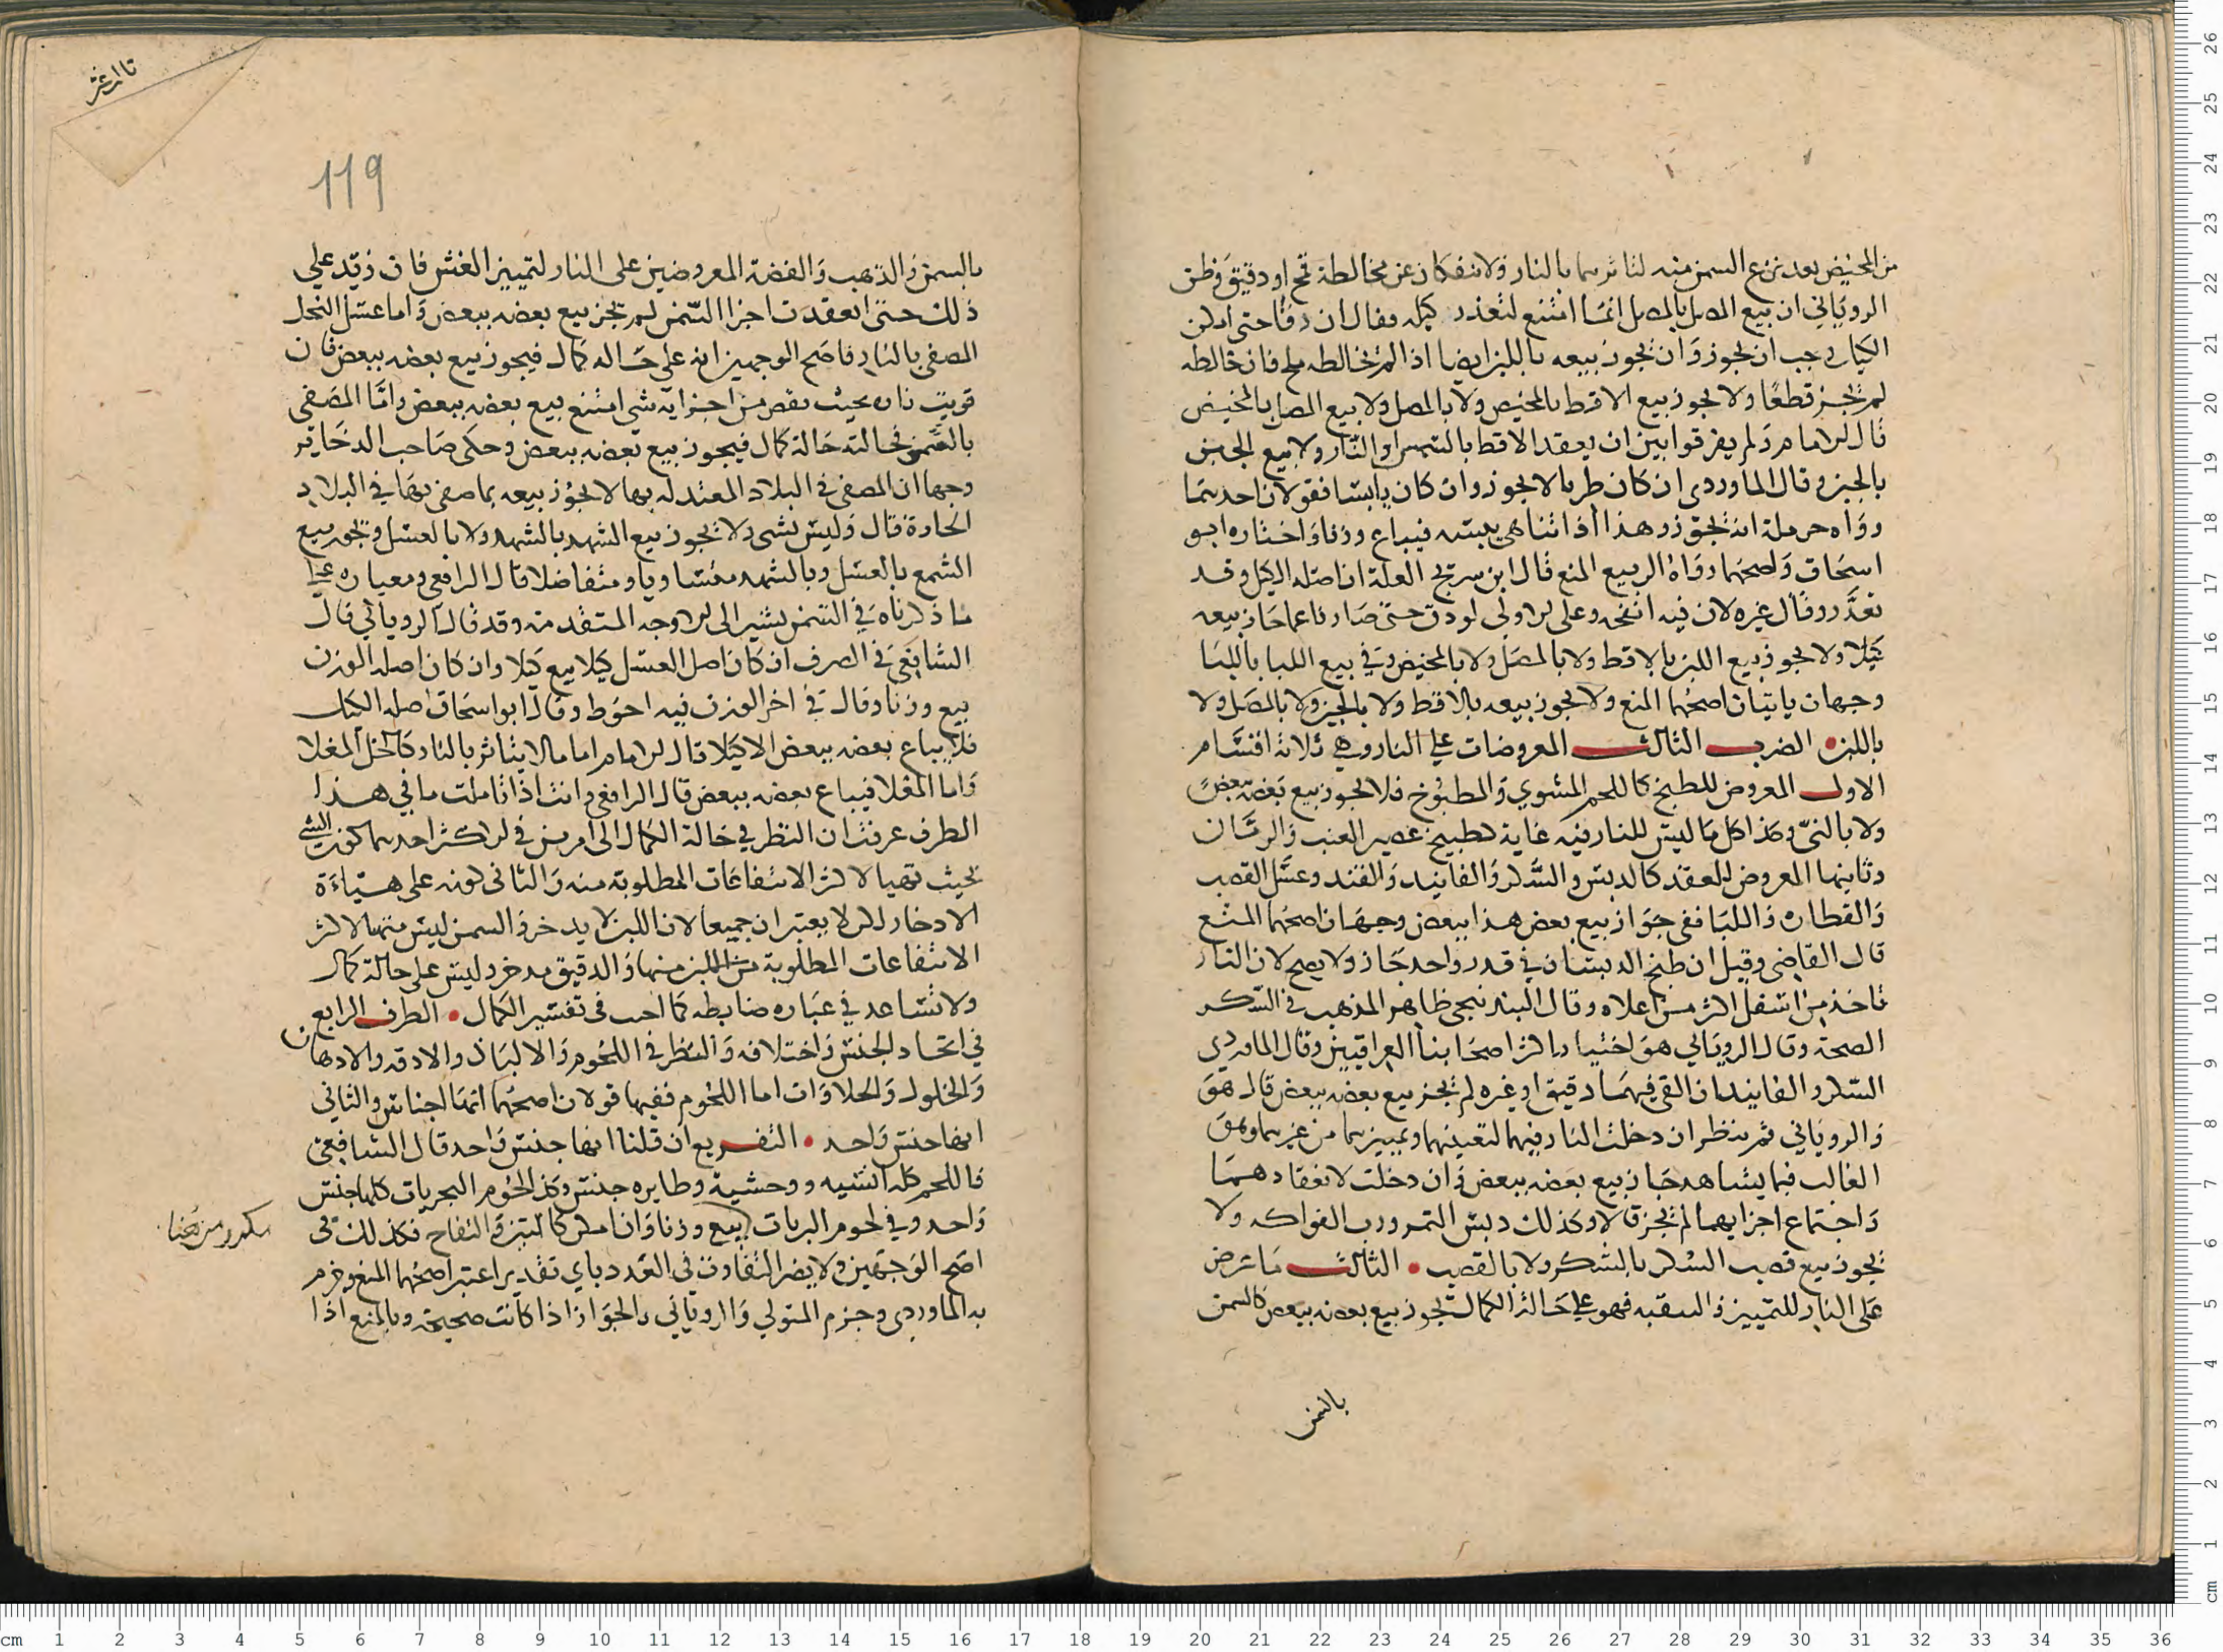 من المخيض بعد نزع السمن منه لتاثرهما بالنار ولا ينفكان عن مخالطة قمح او دقيق وظن
الروياني ان بيع المصل بالمصل انما امتنع لتعذر كيله فقال ان دقا حتى امكن
الكيل وجب ان يجوز وان يجوز بيعه باللبن ايضا اذا لم يخالطه ملح فان خالطه
لم يجز قطعا ولا يجوز بيع الاقط بالمخيض ولا بالمصل ولا بيع المصل بالمخيض
قال الامام ولم يفرقوا بين ان يعقد الاقط بالشمس او النار ولا بيع الجبن
بالجبن وقال الماوردي ان كان رطبا لا يجوز وان كان يابسا فقولان احدهما
رواه حرملة انه يجوز وهذا اذا تناهى يبسه فيباع وزنا واختاره ابو
اسحاق واصحهما رواه الربيع المنع قال ابن سريج العلة ان اصله الكيل وقد
تعذر وقال غيره لان فيه انفحه وعلى الاولى لو دق حتى صار ناعما جاز بيعه
كيلا ولا يجوز بيع اللبن بالاقط ولا بالمصل ولا بالمخيض وفي بيع اللبا باللبا
وجهان ياتيان اصحهما المنع ولا يجوز بيعه بالاقط ولا بالجبن ولا بالمصل ولا
باللبن الضرب الثالث المعروضات على النار وهي ثلاثة اقسام
الاول المعروض للطبخ كاللحم المشوي والمطبوخ فلا يجوز بيع بعضه ببعض
ولا بالنيّ وكذا كل ما ليس للنار فيه غاية كطبيخ عصير العنب والرمان
وثانيها المعروض للعقد كالدبس والسكر والفانيد والقند وعسل القصب
والقطاره واللبا ففي جواز بيع بعض هذا ببعض وجهان اصحهما المنع
قال القاضي وقيل ان طبخ الدبسان في قدر واحد جاز ولا يصح لان النار
تاخذ من اسفل اكثر من اعلاه وقال البندنيجي ظاهر المذهب في السكر
الصحة وقال الروياني هو اختيار اكثر اصحابنا العراقيين وقال الماوردي
السكر والفانيد ان القي فيهما دقيق او غيره لم يجز بيع بعضه ببعض قال هو
والروياني ثم ينظر ان دخلت النار فيهما لتعينهما وتمييزهما من غيرهما وهو
الغالب فيما يشاهد جاز بيع بعضه ببعض وان دخلت لانعقادهما
واجتماع اجزايهما لم يجز قالا وكذلك دبس التمر ورب الفواكه ولا
يجوز بيع قصب السكر بالسكر ولا بالقصب الثالث ما عرض
على النار للتمييز والتنقيه فهو على حالة الكمال يجوز بيع بعضه ببعض كالسمن
بالسمن
119
بالسمن والذهب والفضة المعروضين على النار لتمييز الغش فان زيد على
ذلك حتى انعقدت اجزا السمن لم يجز بيع بعضه ببعض واما عسل النحل
المصفى بالنار فاصح الوجهين انه على حاله كمال فيجوز بيع بعضه ببعض فان
قويت ناره بحيث نقص من اجزايه شي امتنع بيع بعضه ببعض واما المصفى
بالشمس فحالته حالة كمال فيجوز بيع بعضه ببعض وحكى صاحب الدخاير
وجها ان المصفى في البلاد المعتدله بها لا يجوز بيعه بما صفى بها في البلاد
الحارة قال وليس بشى ولا يجوز بيع الشهد بالشهد ولا بالعسل ويجوز بيع
الشمع بالعسل وبالشهد متساويا ومتفاضلا قال الرافعي ومعياره على
ما ذكرناه في السمن يشير الى الاوجه المتقدمة وقد قال الروياني قال
الشافعي في الصرف ان كان اصل العسل كيلا بيع كيلا وان كان اصله الوزن
بيع وزنا وقال في اخر الوزن فيه احوط وقال ابو اسحاق اصله الكيل
فلا يباع بعضه ببعض الا كيلا قال الامام اما ما لا يتاثر بالنار كالخل المغلا
واما المغلا فيباع بعضه ببعض قال الرافعي وانت اذا تاملت ما في هذا
الطرف عرفت ان النظر في حالة الكمال الى امرين في الاكثر احدهما كون الشي
بحيث تهيا لاكثر الانتفاعات المطلوبة منه والثاني كونه على هيئاءة
الادخار لكن لا يعتبران جميعا لان اللبن لا يدخر والسمن ليس متهيا لاكثر
الانتفاعات المطلوبة من اللبن منها والدقيق مدخر وليس على حالة كمال
ولا تساعد في عباره ضابطه كما احب في تفسير الكمال الطرف الرابع
في اتحاد الجنس واختلافه والنظر في اللحوم والالبان والادقه والادهان
والخلول والحلاوات اما اللحوم ففيها قولان اصحهما انها اجناس والثاني
انها جنس واحد التفريع ان قلنا انها جنس واحد قال الشافعي
فاللحم كله انسيه ووحشية وطايره جنس وكذا لحوم البحريات كلها جنس
واحد وفي لحوم البريات بيع وزنا وان امكن كالتين والتفاح فكذلك في
اصح الوجهين ولا يضر التفاوت في العدد باي تقدير اعتبر اصحهما المنع وجزم
به الماوردي وجزم المتولي والروياني بالجواز اذا كانت صحيحة وبالمنع اذا